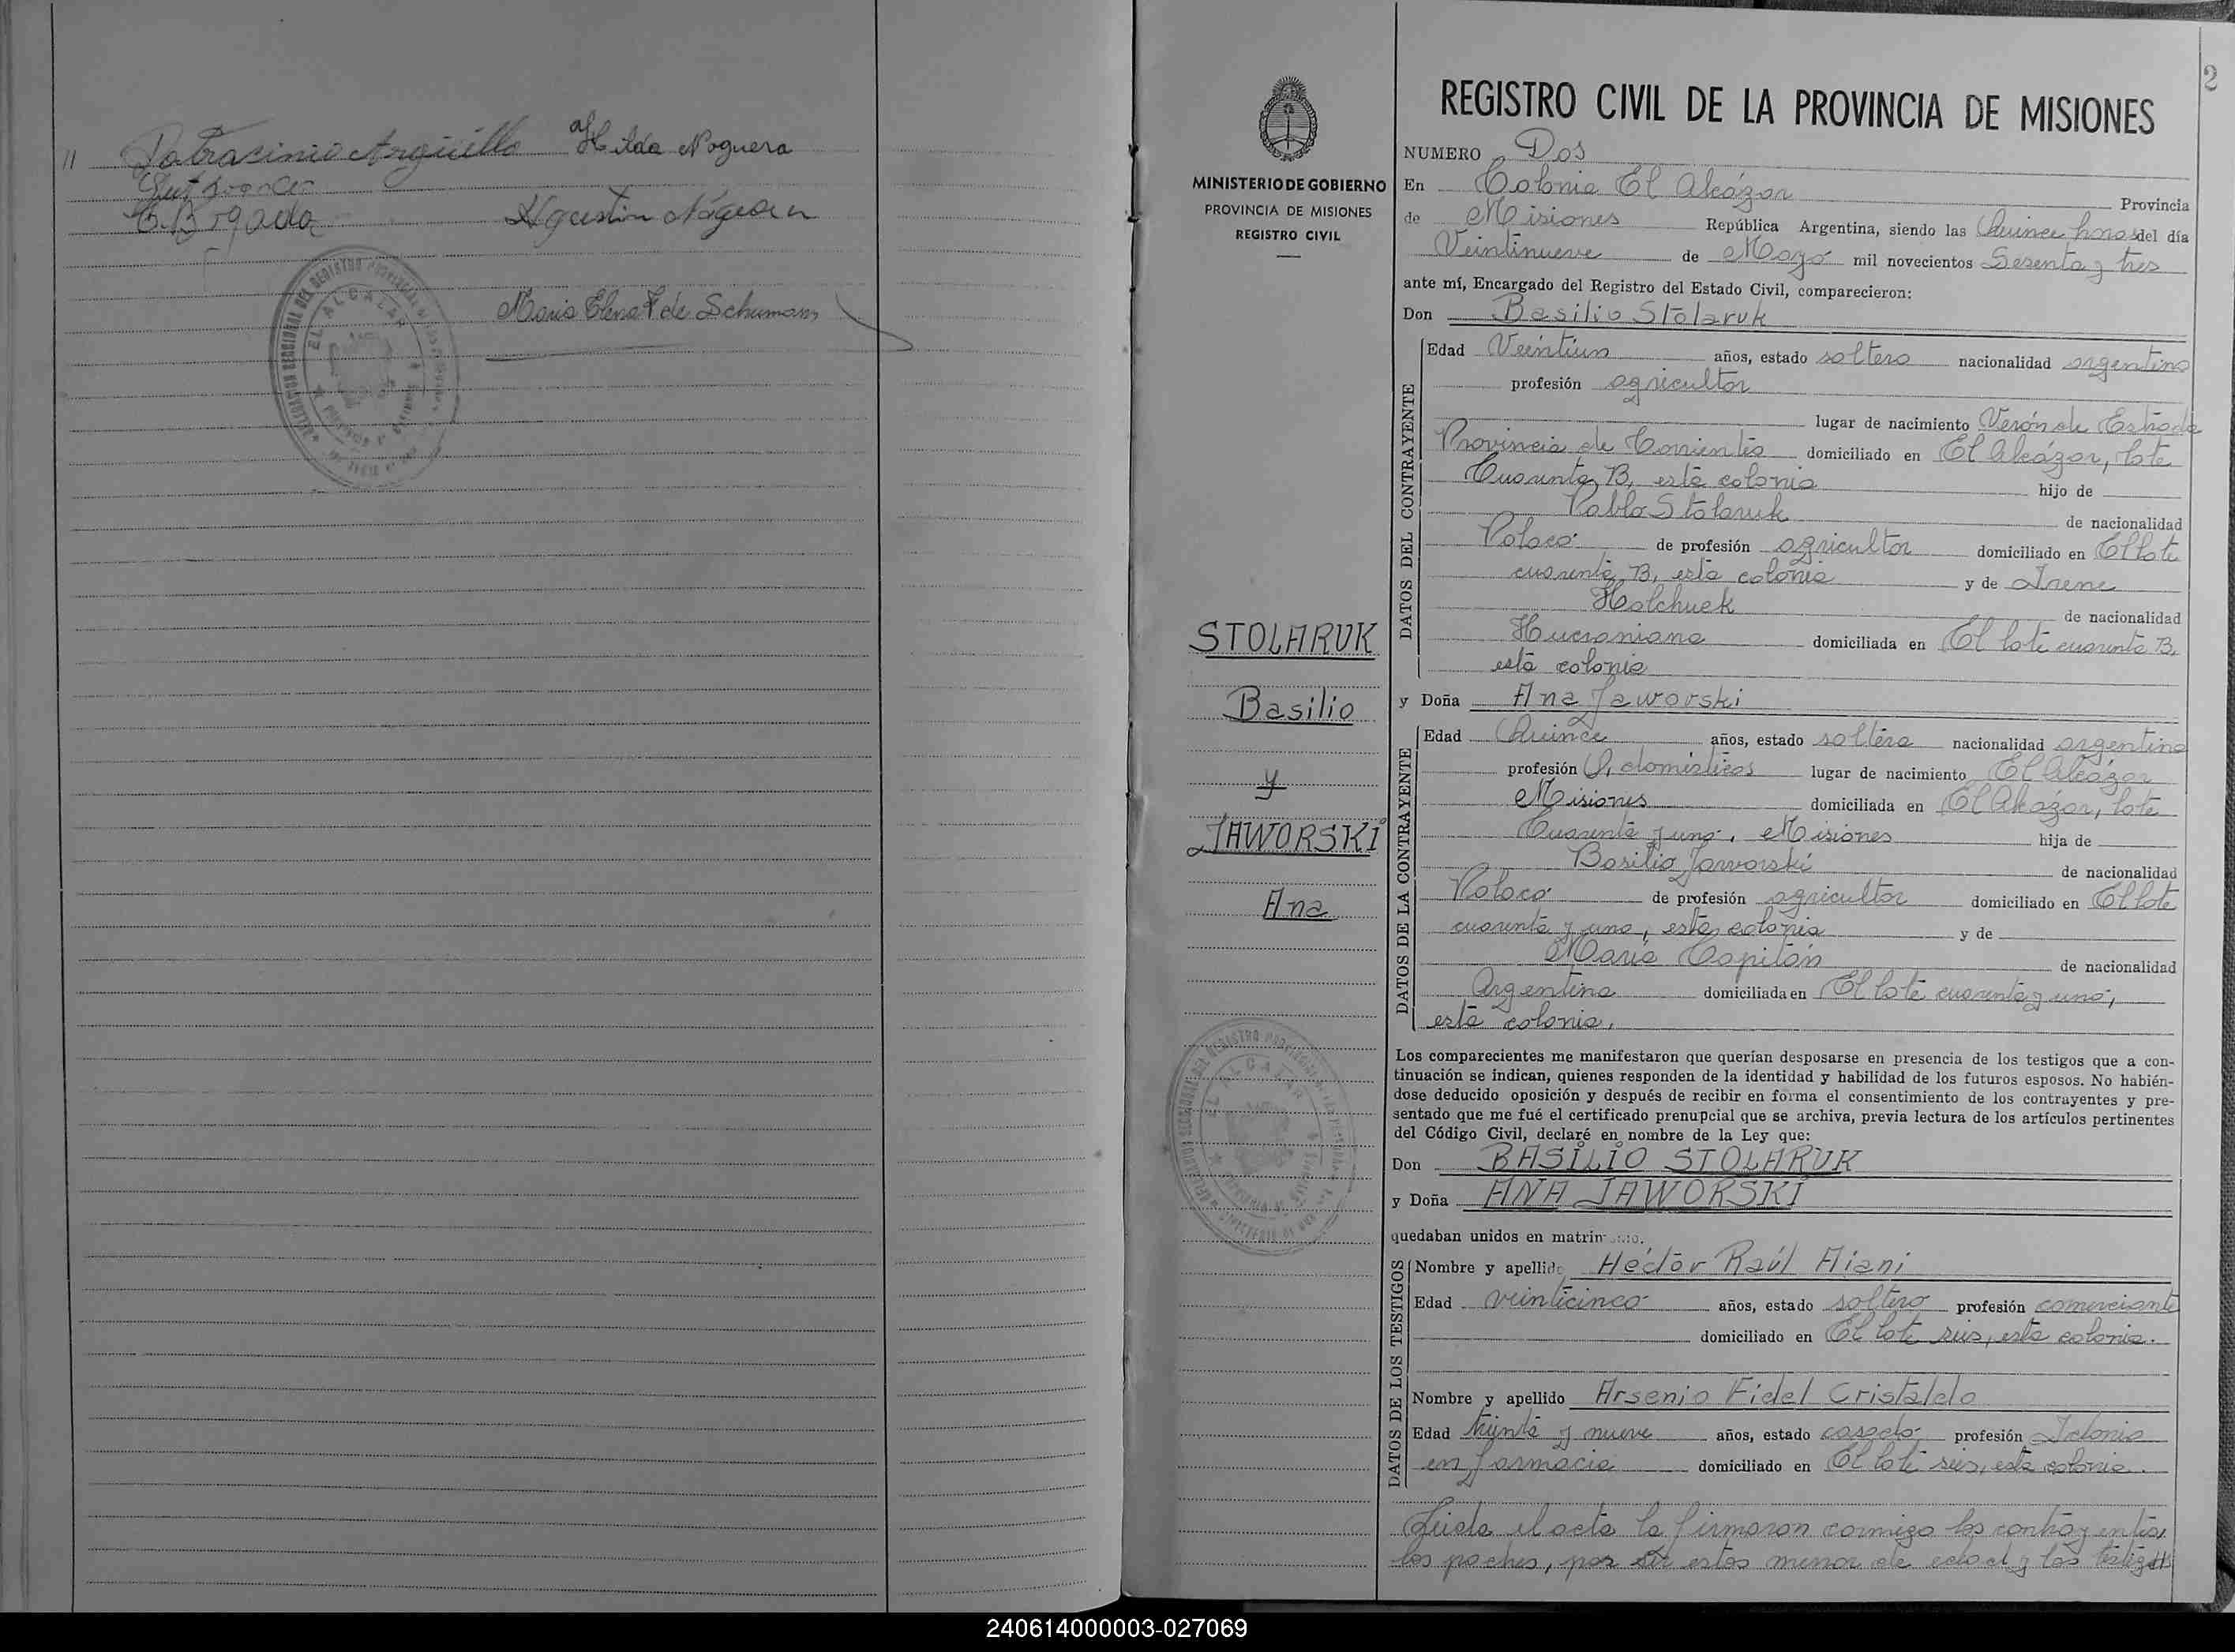 11 Patrocinio Argüello Hilda Noguera
Agustin
Maria Elena F de Schumann
EL ALCAZAR
2
REGISTRO CIVIL DE LA PROVINCIA DE MISIONES
MINISTERIO DE GOBIERNO
PROVINCIA DE MISIONES
REGISTRO CIVIL
NUMERO Dos
En Colonia El Alcázar Provincia
de Misiones República Argentina, siendo las Quince horas del día
Veintinueve de Mayo mil novecientos Sesenta y tres
ante mí, Encargado del Registro del Estado Civil, comparecieron:
Don Basilio Stolaruk
DATOS DEL CONTRAYENTE
Edad Veintiun años, estado soltero nacionalidad argentino
profesión agricultor
lugar de nacimiento Verón de Estrada
Provincia de Corrientes domiciliado en El Alcázar, lote
Cuarenta B, esta colonia hijo de
Pablo Stolaruk de nacionalidad
Polaco de profesión agricultor domiciliado en El lote
cuarenta B, esta colonia y de Irene
Halchuck de nacionalidad
Hucraniana domiciliada en El lote cuarenta B,
esta colonia
STOLARUK
Basilio
y
JAWORSKI
Ana
y Doña Ana Jaworski
DATOS DE LA CONTRAYENTE
Edad Quince años, estado soltera nacionalidad argentina
profesión Q. domésticos lugar de nacimiento El Alcázar
Misiones domiciliada en El Alcázar, lote
Cuarenta y uno, Misiones hija de
Basilio Jaworski de nacionalidad
Polaco de profesión agricultor domiciliado en El lote
cuarenta y uno, esta colonia y de
María Capitán de nacionalidad
Argentina domiciliada en El lote cuarenta y uno,
esta colonia.
Los comparecientes me manifestaron que querían desposarse en presencia de los testigos que a con-
tinuación se indican, quienes responden de la identidad y habilidad de los futuros esposos. No habién-
dose deducido oposición y después de recibir en forma el consentimiento de los contrayentes y pre-
sentado que me fué el certificado prenupcial que se archiva, previa lectura de los artículos pertinentes
del Código Civil, declaré en nombre de la Ley que:
Don BASILIO STOLARUK
y Doña ANA JAWORSKI
quedaban unidos en matrimonio.
DATOS DE LOS TESTIGOS
Nombre y apellido Héctor Raúl Aiani
Edad veinticinco años, estado soltero profesión comerciante
domiciliado en El lote seis, esta colonia.
Nombre y apellido Arsenio Fidel Cristaldo
Edad treinta y nueve años, estado casado profesión Idonio
en farmacia domiciliado en El lote seis, esta colonia.
Leida el acta la firmaron conmigo los contrayentes,
los padres, por ser estos menor de edad y los testigos
240614000003-027069